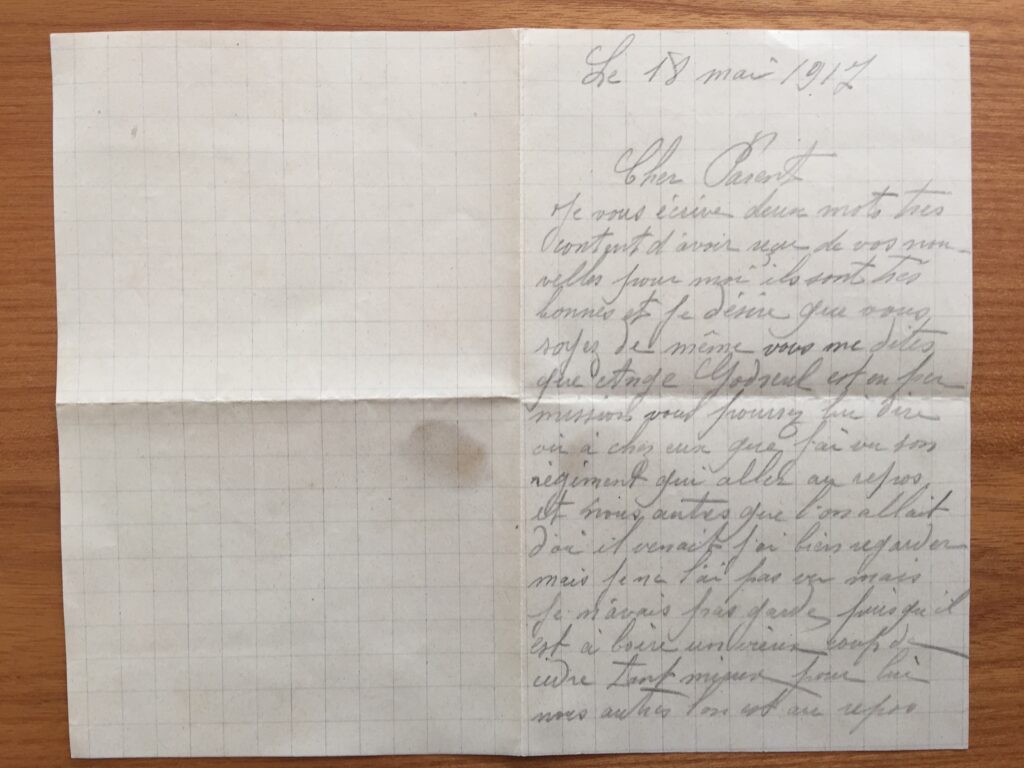 Le 18 mai 1917
Cher Parent
Je vous écrive deux mots tres
content d'avoir reçu de vos nou-
velles pour moi ils sont très
bonnes et je désire que vous
soyez de même vous me dites
que Ange est en per
mission vous pourrez lui dire
à chez eux que j'ai vu son
régiment qui allez au repos
et nous autres que l'on allait
d'où il venait j'ai bien regarder
mais je ne l'ai pas vu mais
je n'avais pas garde puisqu'il
est à boire un vieux coup de
cidre tant mieux pour lui
nous autres l'on est au repos